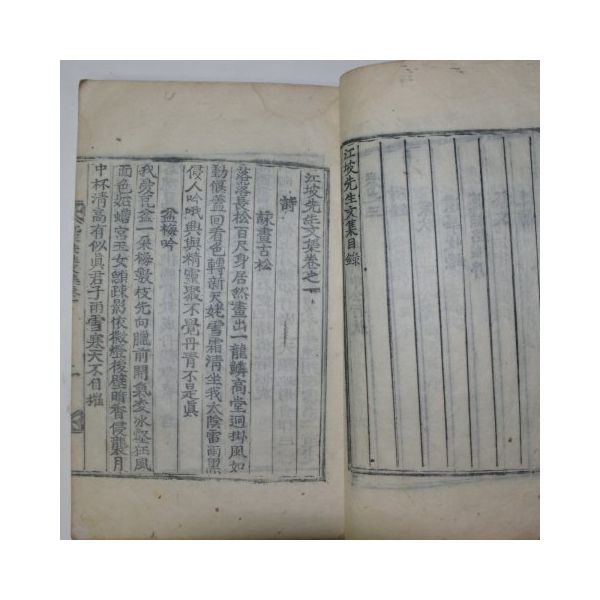 江坡先生文集目錄
江坡先生文集卷之一
詩
詠畫古松
落落長松百尺身居然畫出一龍鱗高堂逈掛風如
動偃蓋回看色轉新天姥雪霜清坐我太陰雷雨黑
侵人吟哦興與精靈聚不覺丹靑不是眞
盆梅吟
我愛瓦盆一朶梅數枝先向臘前開氣凌冰壑狂風
面色妬蟾宮玉女顋疎影依微燈後壁暗香侵襲月
中杯淸高有似眞君子雨雪寒天不自摧